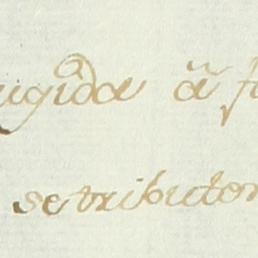 rigida ã f
se tributor